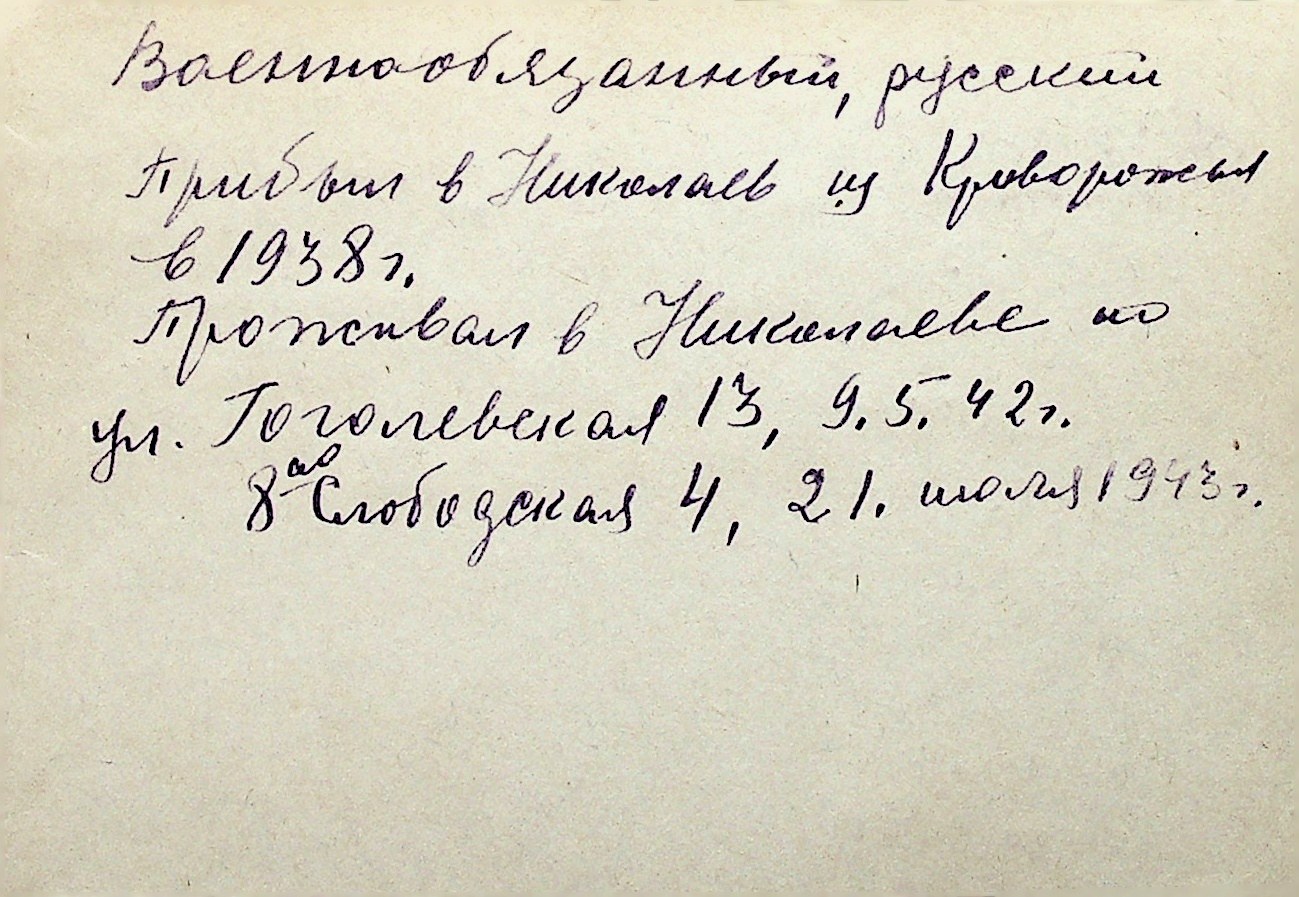 Военнообязанный, русский
Прибыл в Николаев из Криворожья
в 1938 г.
Проживал в Николаеве по
ул. Гоголевская 13, 9.5.42 г.
8 по Слободская 4, 21. июля 1943 г.